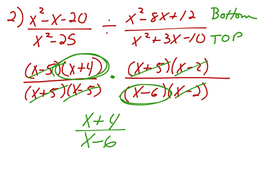 2) x²-x-20 / x²-25 ÷ x²-8x+12 / x²+3x-10 Bottom TOP
(x-5)(x+4) / (x+5)(x-5) · (x+5)(x-2) / (x-6)(x-2)
x+4 / x-6